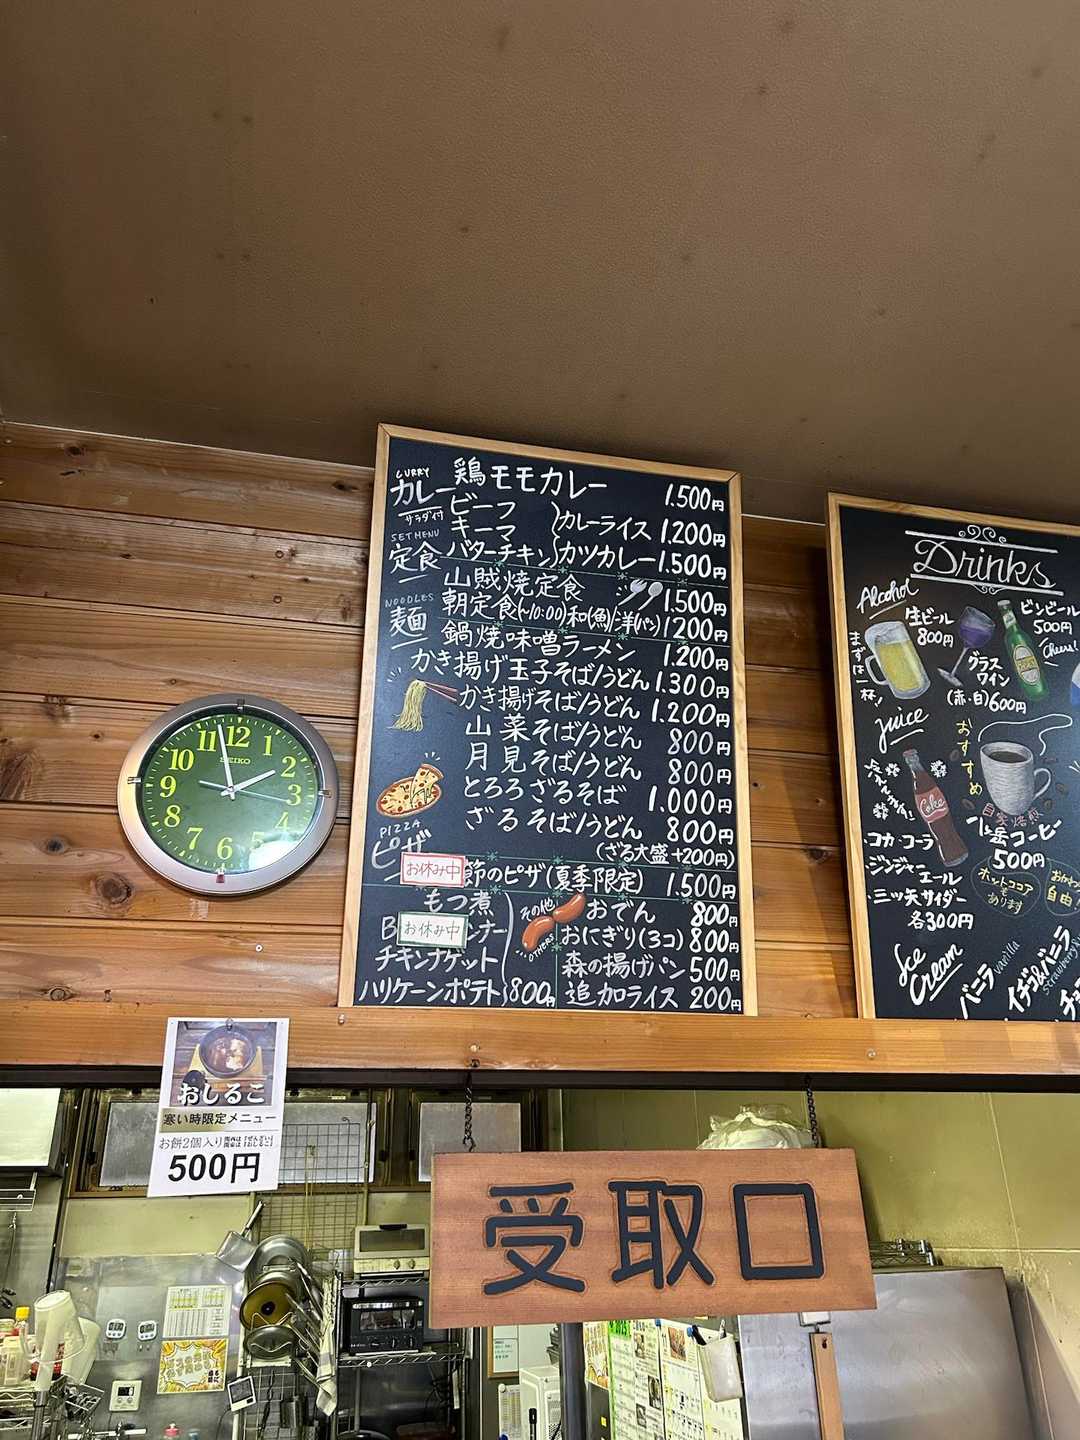 CURRY
カレー
サラダ付
鶏モモカレー 1.500円
ビーフ
キーマ
バターチキン
カレーライス 1.200円
カツカレー 1.500円
SET MENU
定食
山賊焼定食 1.500円
朝定食(~10:00)和(魚)洋(パン) 1200円
NOODLES
麺
鍋焼味噌ラーメン 1.200円
かき揚げ玉子そば/うどん 1.300円
かき揚げそば/うどん 1.200円
山菜そば/うどん 800円
月見そば/うどん 800円
とろろざるそば 1.000円
ざるそば/うどん 800円
(ざる大盛+200円)
PIZZA
ピザ
お休み中
節のピザ(夏季限定) 1.500円
もつ煮
お休み中
チキンナゲット
ハリケーンポテト 800円
その他
OTHERS
おでん 800円
おにぎり(3コ) 800円
森の揚げパン 500円
追加ライス 200円
Drinks
Alcohol
まずは一杯!
生ビール
800円
グラス
ワイン
(赤・白)600円
ビンビール
500円
Cheers!
Juice
冷えてます!
Coke
・コカ・コーラ
・ジンジャーエール
・三ツ矢サイダー
各300円
おすすめ
自家焙煎
八ヶ岳コーヒー
500円
ホットココア
も
あります
Ice
Cream
バニラ
vanilla
イチゴ&バニラ
SEIKO
11 12 1
10 2
9 3
8 4
7 6 5
おしるこ
寒い時限定メニュー
お餅2個入り
500円
受取口